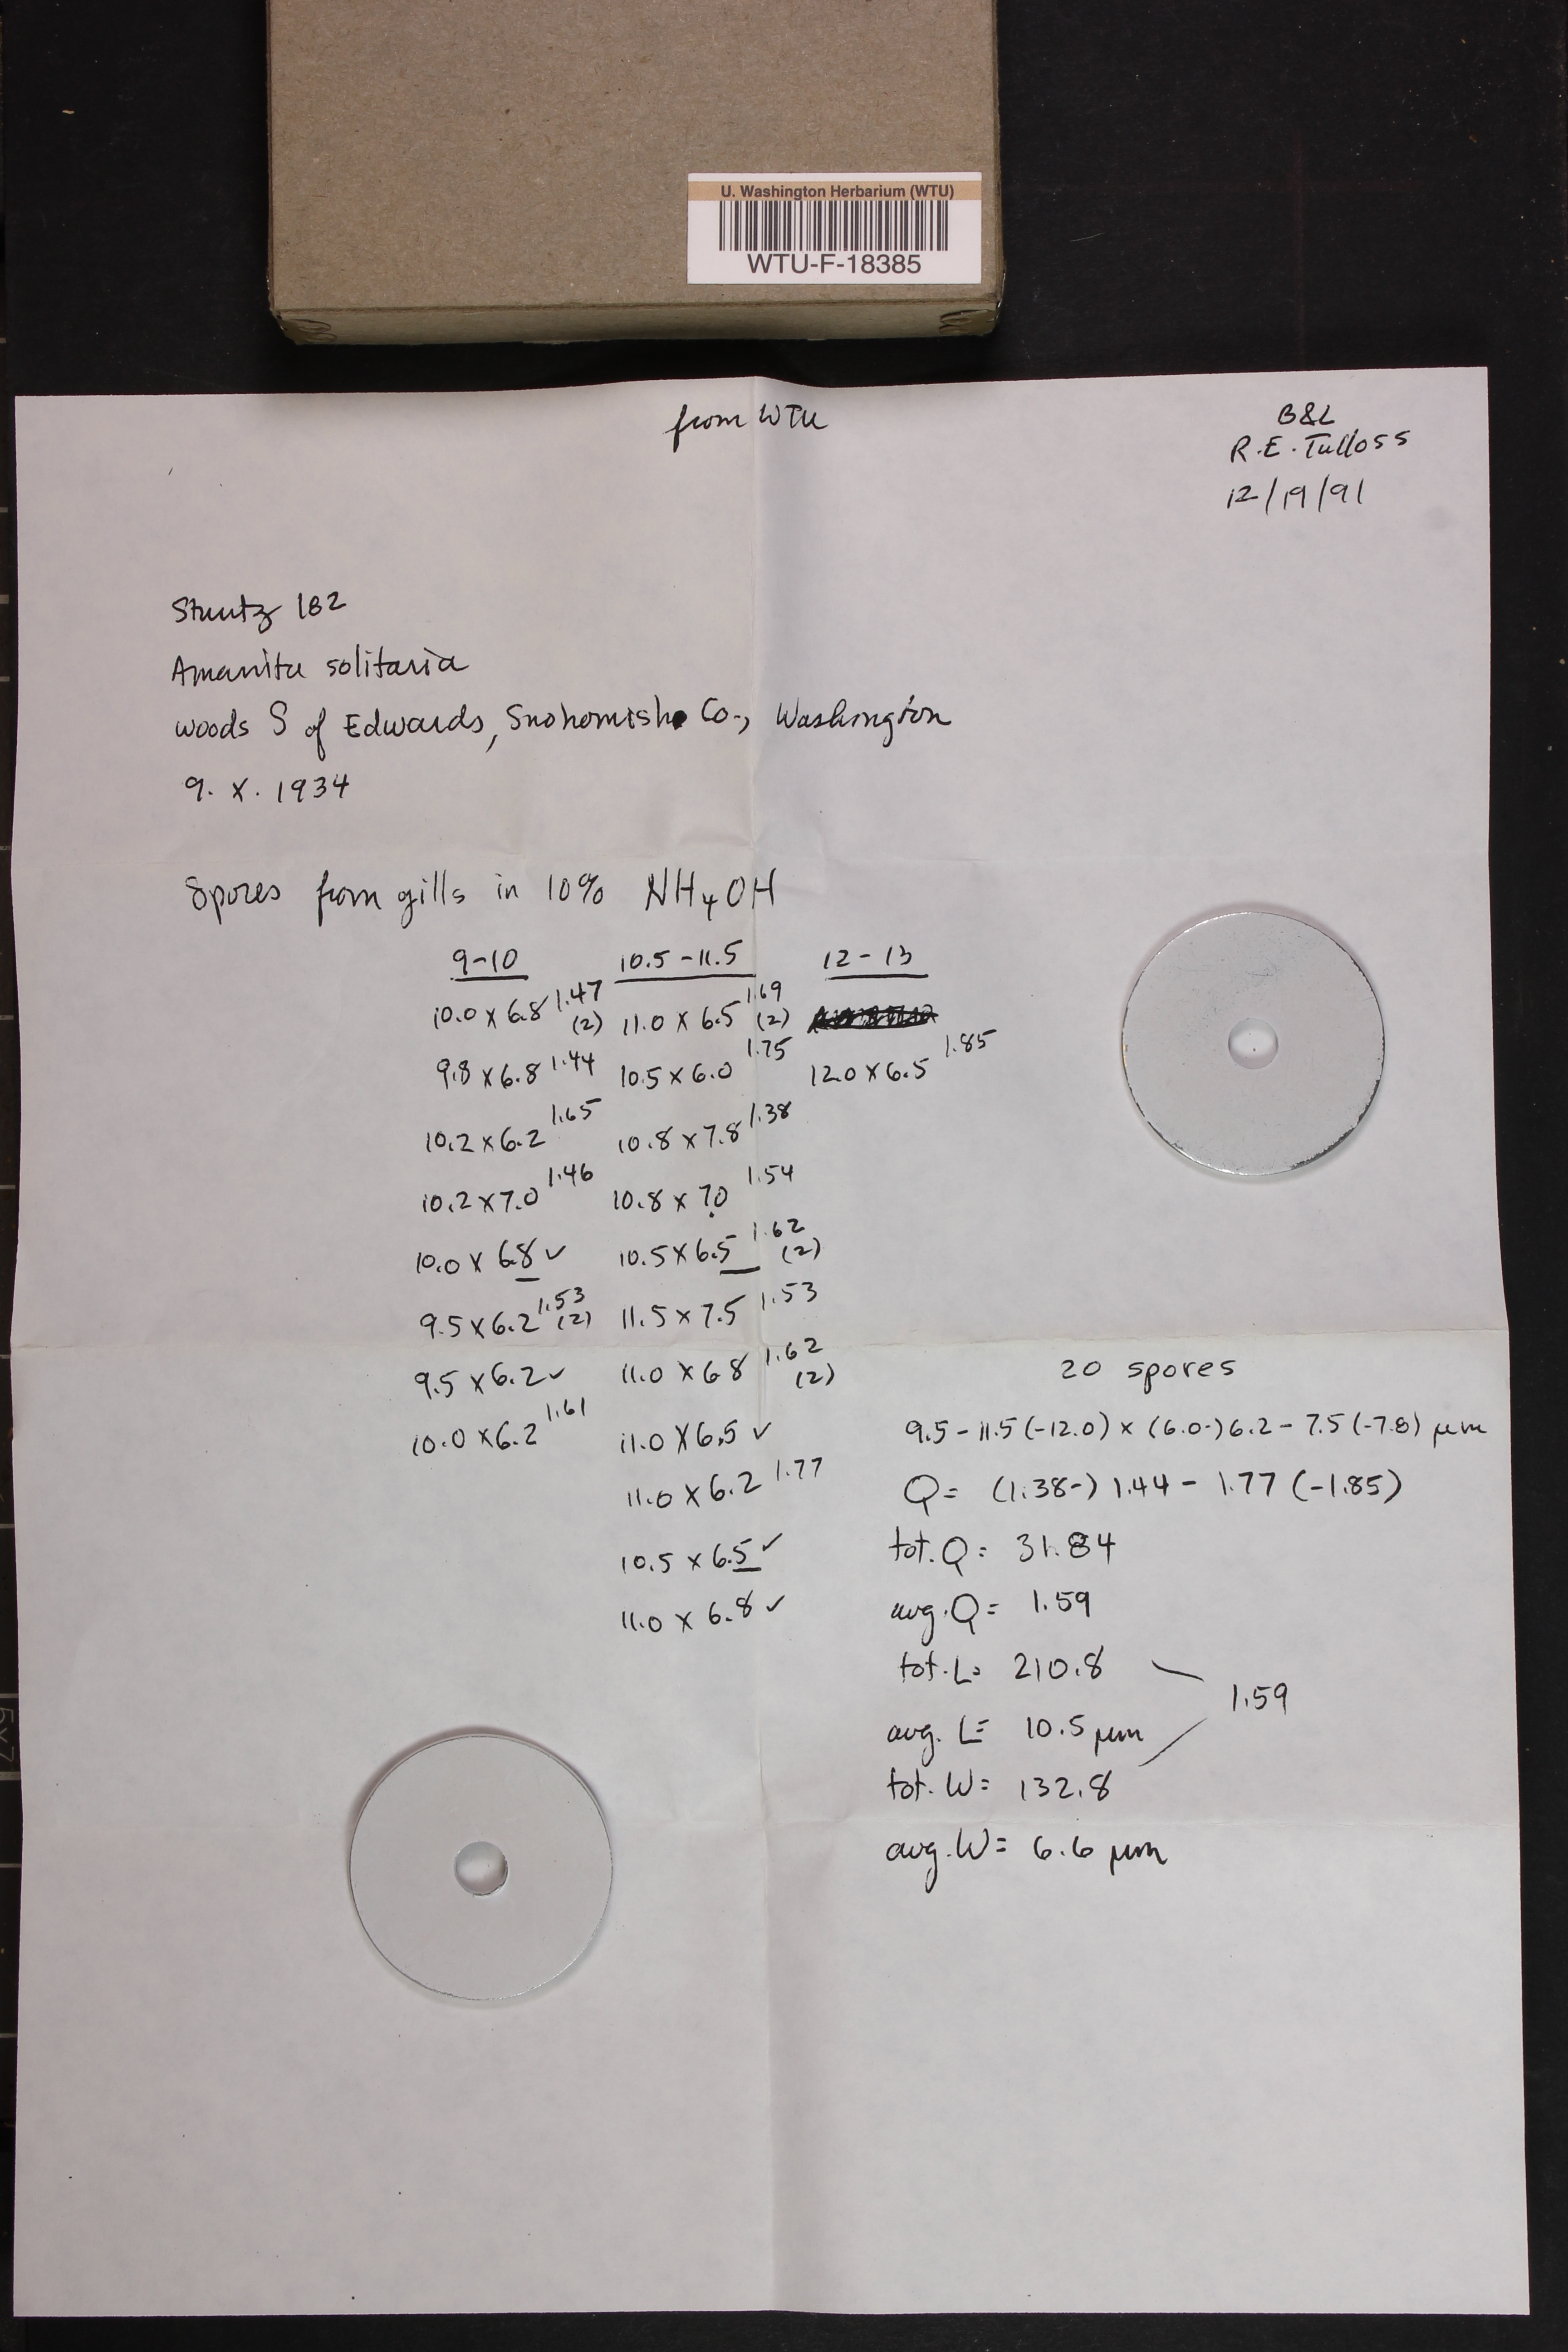 U. Washington Herbarium (WTU)
WTU-F-18385
from WTU
B&L
R.E. Tulloss
12/19/91
Stuntz 182
Amanita solitaria
woods S of Edwards, Snohomish Co., Washington
9. X. 1934
Spores from gills in 10% NH4OH
9-10 10.5-11.5 12-13
10.0 x 6.8 1.47 (2) 11.0 x 6.5 1.69 (2)
9.8 x 6.8 1.44 10.5 x 6.0 1.75 12.0 x 6.5 1.85
10.2 x 6.2 1.65 10.8 x 7.8 1.38
10.2 x 7.0 1.46 10.8 x 7.0 1.54
10.0 x 6.8 ✓ 10.5 x 6.5 1.62 (2)
9.5 x 6.2 1.53 (2) 11.5 x 7.5 1.53
9.5 x 6.2 ✓ 11.0 x 6.8 1.62 (2)
10.0 x 6.2 1.61 11.0 x 6.5 ✓
11.0 x 6.2 1.77
10.5 x 6.5 ✓
11.0 x 6.8 ✓
20 spores
9.5 - 11.5 (-12.0) x (6.0-) 6.2 - 7.5 (-7.8) µm
Q = (1.38-) 1.44 - 1.77 (-1.85)
tot. Q = 31.84
avg. Q = 1.59
tot. L = 210.8
1.59
avg. L = 10.5 µm
tot. W = 132.8
avg. W = 6.6 µm